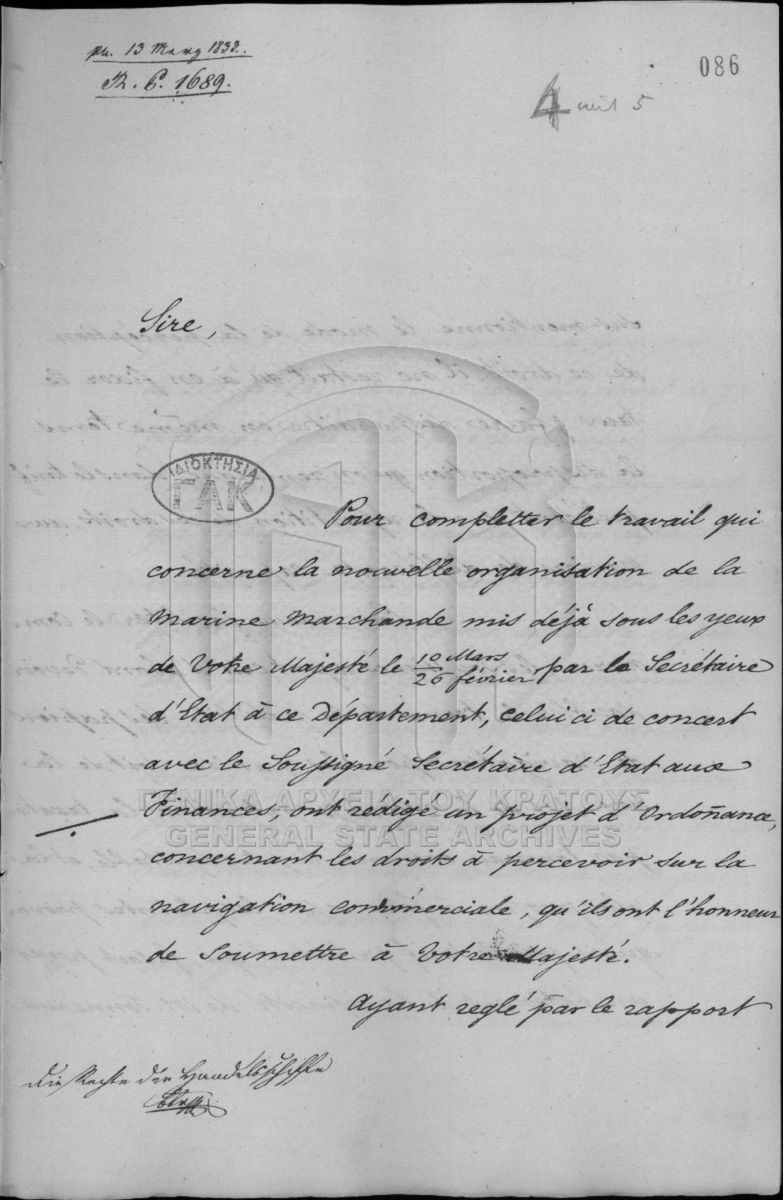 pn. 13 März 1833.
N. P. 1689.
086
4 mit 5
Sire,
ΙΔΙΟΚΤΗΣΙΑ
ΓΑΚ
Pour completter le travail qui
concerne la nouvelle organisation de la
Marine Marchande mis déjà sous les yeux
de Votre Majesté le 10 Mars / 26 février par le Secrétaire
d'Etat à ce Département, celui ci de concert
avec le Soussigné Secrétaire d'Etat aux
Finances, ont rédigé un projet d'Ordoñance,
concernant les droits à percevoir sur la
navigation commerciale, qu'ils ont l'honneur
de Soumettre à Votre Majesté.
Ayant reglé par le rapport
die Rechte der Handelsschiffe
ΓΕΝΙΚΑ ΑΡΧΕΙΑ ΤΟΥ ΚΡΑΤΟΥΣ
GENERAL STATE ARCHIVES